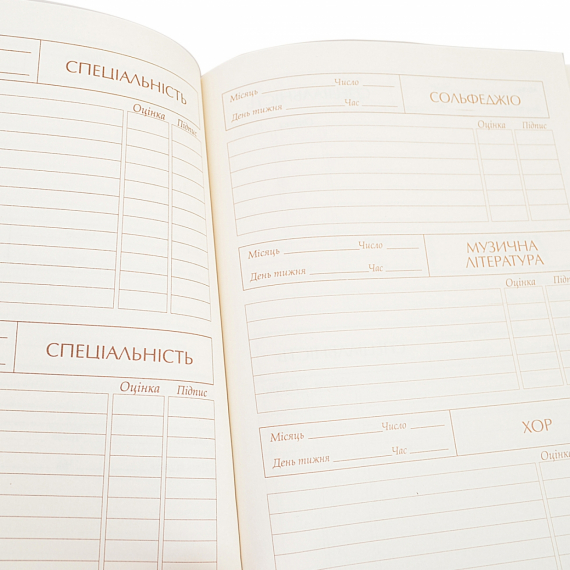 СПЕЦІАЛЬНІСТЬ
Оцінка Підпис
СПЕЦІАЛЬНІСТЬ
Оцінка Підпис
Місяць Число
День тижня Час
СОЛЬФЕДЖІО
Оцінка Підпис
Місяць Число
День тижня Час
МУЗИЧНА
ЛІТЕРАТУРА
Оцінка
Місяць Число
День тижня Час
ХОР
Оцінка